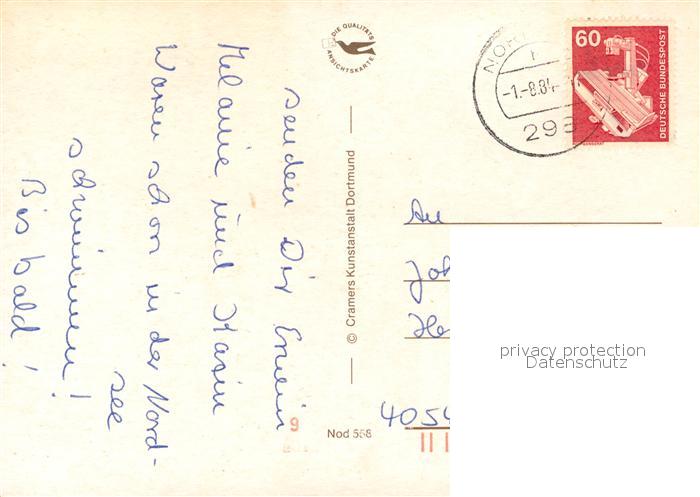 senden Dir Erwin
Melanie und Karin
Waren schon in der Nord-
see
schwimmen!
Bis bald!
DIE QUALITÄTS
ANSICHTSKARTE
© Cramers Kunstanstalt Dortmund
Nod 558
9
60
DEUTSCHE BUNDESPOST
-1.-8.84-
298
An
Joh
He
4054
privacy protection
Datenschutz